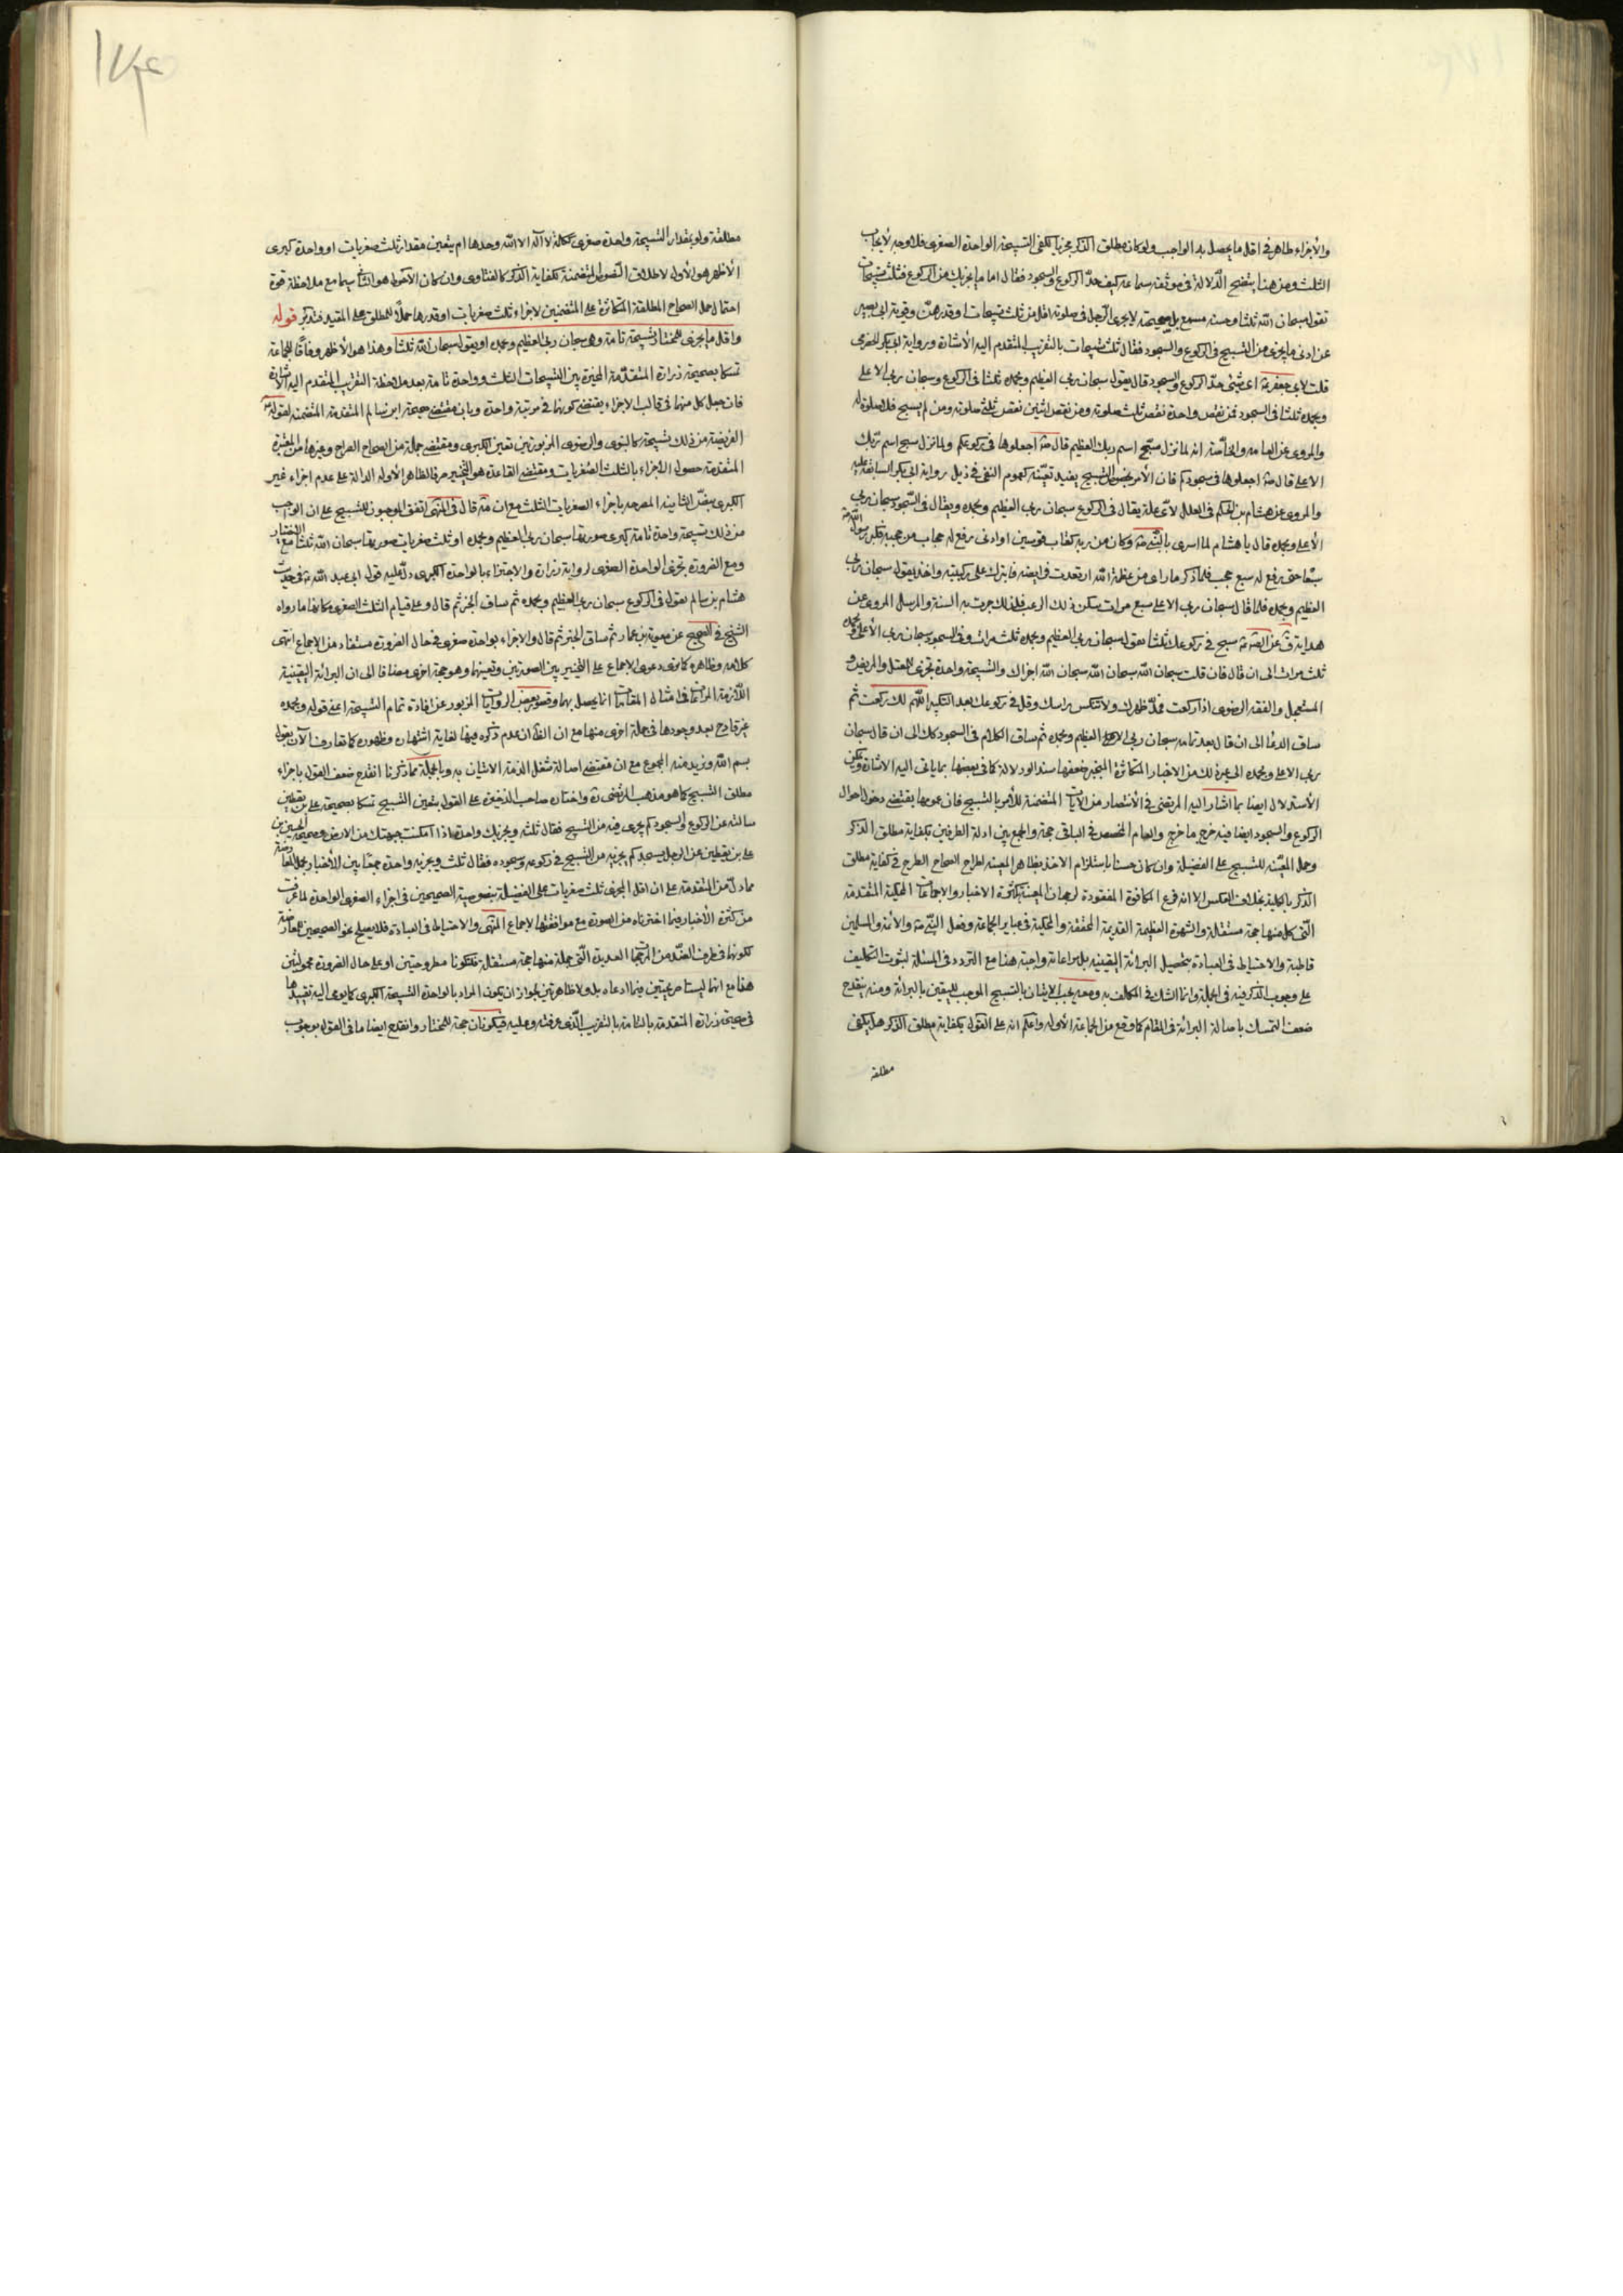 والأجزاء ظاهر فى اقل ما يحصل به الواجب ولو كان مطلق الذكر مجزيا لكفى التسبيحة الواحدة الصغرى فلا وجه لأيجاب
الثلث ومن هنا يتضح الدلالة فى موثقه سماعه كيف حدّ الركوع والسجود فقال اما ما يجزيك من الركوع فثلث تسبيحات
تقول سبحان الله ثلثا وحسنه مسمع بل صحيحته لا يجزى الرجل فى صلوته اقل من ثلث تسبيحات او قدرهنّ وقوية ابى بصير
عن ادنى ما يجزى من التسبيح فى الركوع والسجود فقال ثلث تسبيحات بالتقريب المتقدم اليه الأشارة ورواية ابى بكر الحضرمى
قلت لابى جعفر ع اى شئ حدّ الركوع والسجود قال يقول سبحان ربى العظيم وبحمده ثلثا فى الركوع وسبحان ربى الاعلى
وبحمده ثلثا فى السجود فمن نقص واحدة نقص ثلث صلوته ومن نقص اثنين نقص ثلثى صلوته ومن لم يسبح فلا صلوة له
والمروى عن العامه والخاصة انه لما نزل سبّح اسم ربك العظيم قال ص اجعلوها فى ركوعكم ولما نزل سبح اسم ربك
الاعلى قال ص اجعلوها فى سجودكم فان الأمر بخصوص التسبيح يفيد تعيّنه كعموم النفى فى ذيل رواية ابى بكر السابقة عليه
والمروى عن هشام بن الحكم فى العلل لأى علة يقال فى الركوع سبحان ربى العظيم وبحمده ويقال فى السجود سبحان ربى
الأعلى وبحمده قال يا هشام لما اسرى بالنبى ص وكان من ربه كقاب قوسين او ادنى رفع له حجاب من حجبه فكبر رسول الله ص
سبعا حتى رفع له سبع حجب فلما ذكر ما راى من عظمة الله ارتعدت فرايصه فابترك على ركبتيه واخذ يقول سبحان ربى
العظيم وبحمده فلما قال سبحان ربى الاعلى سبع مرات سكن ذلك الرعب فلذلك جرت به السنة والمرسل المروى عن
هداية ق عن الصادق ع سبح فى ركوعك ثلثا تقول سبحان ربى العظيم وبحمده ثلث مرات وفى السجود سبحان ربى الأعلى وبحمده
ثلث مرات الى ان قال فان قلت سبحان الله سبحان الله سبحان الله اجزاك والتسبيحة واحدة تجزى للمعتل والمريض و
المستعجل والفقه الرضوى اذا ركعت فمدّ ظهرك ولا تنكس راسك وقل فى ركوعك بعد التكبير اللهم لك ركعت ثم
ساق الدعا الى ان قال بعد تمامه سبحان ربى العظيم وبحمده ثم ساق الكلام فى السجود كك الى ان قال سبحان
ربى الاعلى وبحمده الى غير ذلك من الاخبار المتكاثرة المنجبر ضعفها سندا ودلالة كما فى بعضها بما ياتى اليه الاشارة ويمكن
الأستدلال ايضا بما اشار اليه المرتضى فى الأنتصار من الآيات المتضمنة للأمر بالتسبيح فان عمومها يقتضى دخول احوال
الركوع والسجود ايضا فيه خرج ما خرج والعام المخصص فى الباقى حجة والجمع بين ادلة الطرفين بكفاية مطلق الذكر
وحمل المعيّنه للتسبيح على الفضيلة وان كان حسنا باستلزام الاخذ بظاهر المعينه لطرح الصحاح الطرح فى كفاية مطلق
الذكر بالكلية بخلاف العكس الا انه فرع المكافوة المفقودة لرجحان المعينة بكثرة الاخبار والاجماعات المحكية المتقدمة
التى كل منها حجة مستقلة والشهرة العظيمة القديمة المحققة والمحكية فى عباير الجماعة وفعل النبى ص والأئمة والمسلمين
قاطبة والاحتياط فى العبادة بتحصيل البرائة اليقينيه بل مراعاته واجبة هنا مع التردد فى المسئلة لثبوت التكليف
على وجوب الذكر فيه فى الجملة وانما الشك فى المكلف به ومعه يجب الاتيان بالتسبيح الموجب لليقين بالبرائة ومنه ينقدح
ضعف التمسك باصالة البرائة فى المقام كما وقع من الجماعة الأوله واعلم انه على القول بكفاية مطلق الذكر هل يكفى
مطلقه
مطلقة ولو بقدار التسبيحة واحدة صغرى ككلمة لا آله الا الله وحدها ام يتعين مقدار ثلث صغريات او واحدة كبرى
الأظهر هو الأول لاطلاق النصوص المتضمنة لكفاية الذكر كالفتاوى وان كان الأحوط هو الثانى سيما مع ملاحظة قوة
احتمال حمل الصحاح المطلقة المتكاثرة على المتضمنين لاجزاء ثلث صغريات او قدرها حملا للمطلق على المقيد فتدبر قوله
واقل ما يجزى للمختار تسبيحة تامة وهى سبحان ربى العظيم وبحمده او يقول سبحان الله ثلثا وهذا هو الأظهر وفاقا لجماعة
تمسكا بصحيحة زرارة المتقدمة المخيرة بين التسبيحات الثلث وواحدة تامة بعد ملاحظة التقريب المتقدم اليه الأشارة
فان جعل كل منها فى قالب الاجزاء يقتضى كونها فى مرتبة واحدة وبان مقتضى صحيحة ابن سالم المتقدمة المتضمنه لقوله ع
الفريضة من ذلك تسبيحة كالنبوى والرضوى المزبورتين تعين الكبرى ومقتضى جملة من الصحاح الصراح وغيرها من المعتبرة
المتقدمة حصول الاجزاء بالثلث الصغريات ومقتضى القاعدة هو التخيير صرفا لظاهر الأوله الدالة على عدم اجزاء غير
الكبرى بنصّ الثانيه المصرحه باجزاء الصغريات الثلث مع ان مه قال فى المنتهى اتفق الموجبون للتسبيح على ان الواجب
من ذلك تسبيحة واحدة تامة كبرى صورتها سبحان ربى العظيم وبحمده او ثلث صغريات صورتها سبحان الله ثلثا مع الاختيار
ومع الضرورة تجزى الواحدة الصغرى لرواية زرارة والاجتزاء بالواحدة الكبرى دلّ عليه قول ابى عبد الله ع فى حديث
هشام بن سالم يقول فى الركوع سبحان ربى العظيم وبحمده ثم ساق الخبر ثم قال وعلى قيام الثلث الصغرى مكانها ما رواه
الشيخ فى الصحيح عن معوية بن عمار ثم ساق الخبر ثم قال والاجزاء بواحدة صغرى فى حال الضرورة مستفاد من الاجماع انتهى
كلامه وظاهره كما ترى دعوى الاجماع على التخيير بين الصورتين وتعينهما وهو حجة اخرى مضافا الى ان البرائة اليقينية
اللازمة المراعاة فى امثال المقامات انما يحصل بها وقصور بعض الروايات المزبور عن افادة تمام التسبيحة اعنى قوله وبحمده
غير قادح بعد وجودها فى جملة اخرى منها مع ان الظ ان عدم ذكره فيها لغاية اشتهاره وظهوره كما تعارف الآن يقول
بسم الله ويريد منه المجموع مع ان مقتضى اصالة شغل الذمة الاتيان به وبالجملة مما ذكرنا انقدح ضعف القول باجزاء
مطلق التسبيح كما هو مذهب المرتضى ره واختاره صاحب الذخيرة على القول بتعين التسبيح تمسكا بصحيحة على بن يقطين
سالته عن الركوع والسجود كم يجزى فيه من التسبيح فقال ثلثة ويجزيك واحدة اذا امكنت جبهتك من الارض وصحيحة الحسين بن
على بن يقطين عن الرجل يسجد كم يجزيه من التسبيح فى ركوعه وسجوده فقال ثلث ويجزيه واحدة جمعا بين الأخبار بحمل
مما دلّ من المتقدمة على ان اقل المجزى ثلث صغريات على الفضيلة بنصوصية الصحيحين فى اجزاء الصغرى الواحدة لما عرفت
من كثرة الأخبار فيما اخترناه من الصورة مع موافقتها لاجماع المنتهى والاحتياط فى العبادة فلا يصلح نحو الصحيحين لمعارضة
لكونها فى طرف الضدّ من المرجحات العديدة التى جملة منها حجة مستقلة فلتكونا مطروحتين او على حال الضرورة محمولتين
هذا مع انهما ليستا صريحتين فيما ادعاه بل ولا ظاهرتين لجواز ان يكون المراد بالواحدة التسبيحة الكبرى كما يومى اليه تقييدها
فى صحيحة زرارة المتقدمة بالتامة بالتقريب الذى عرفته وعليه فيكونان حجة للمختار وانقدح ايضا ما فى القول بوجوب